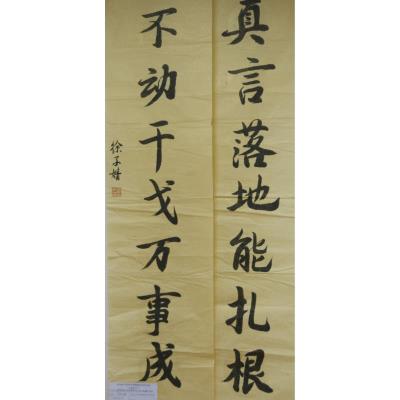 真言落地能扎根
不动干戈万事成
徐子婧